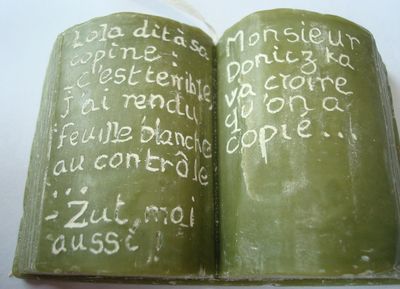 Lola dit à sa
copine :
- c'est terrible,
j'ai rendu
feuille blanche
au contrôle
...
- Zut, moi
aussi !
Monsieur
Doniczka
va croire
qu'on a
copié...